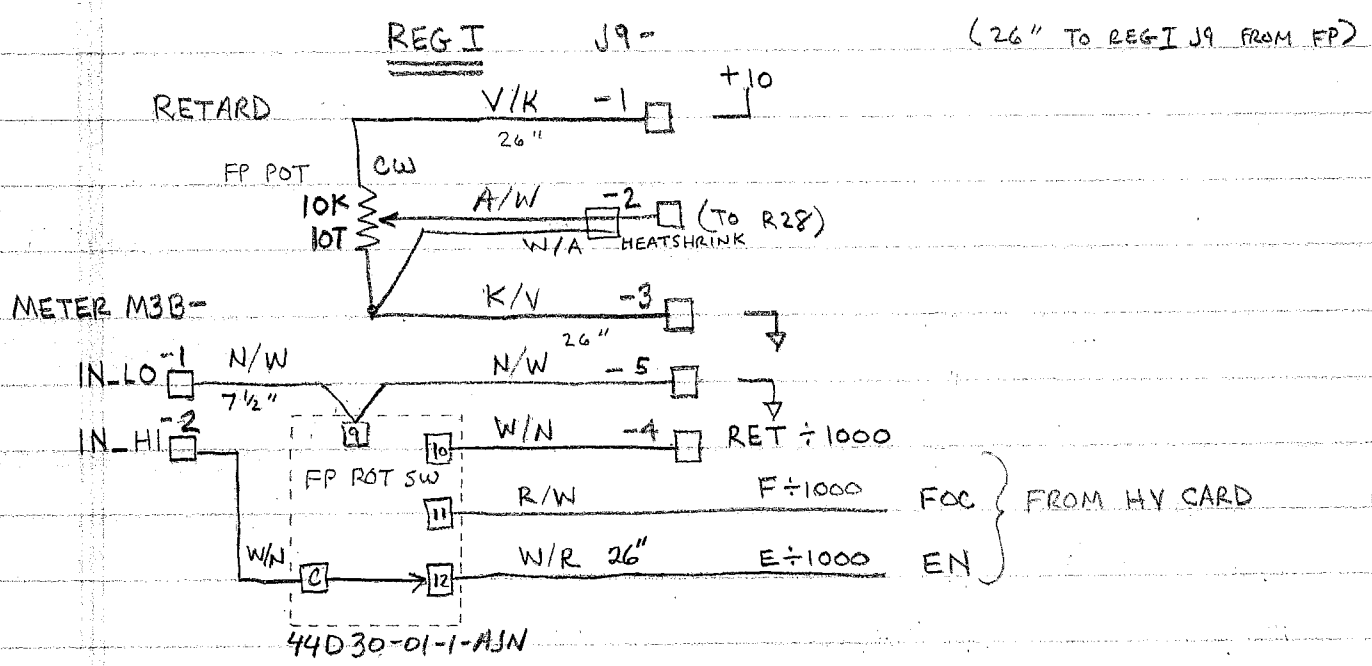 REG I J9- (26" TO REG I J9 FROM FP)
+10
RETARD V/K -1
26"
FP POT CW
10K A/W -2 (TO R28)
10T W/A HEATSHRINK
METER M3B- K/V -3
26"
IN_LO -1 N/W N/W -5
7 1/2"
IN_HI -2 9 10 W/N -4 RET ÷1000
FP ROT SW
11 R/W F÷1000 FOC FROM HV CARD
W/N C 12 W/R 26" E÷1000 EN
44D30-01-1-AJN